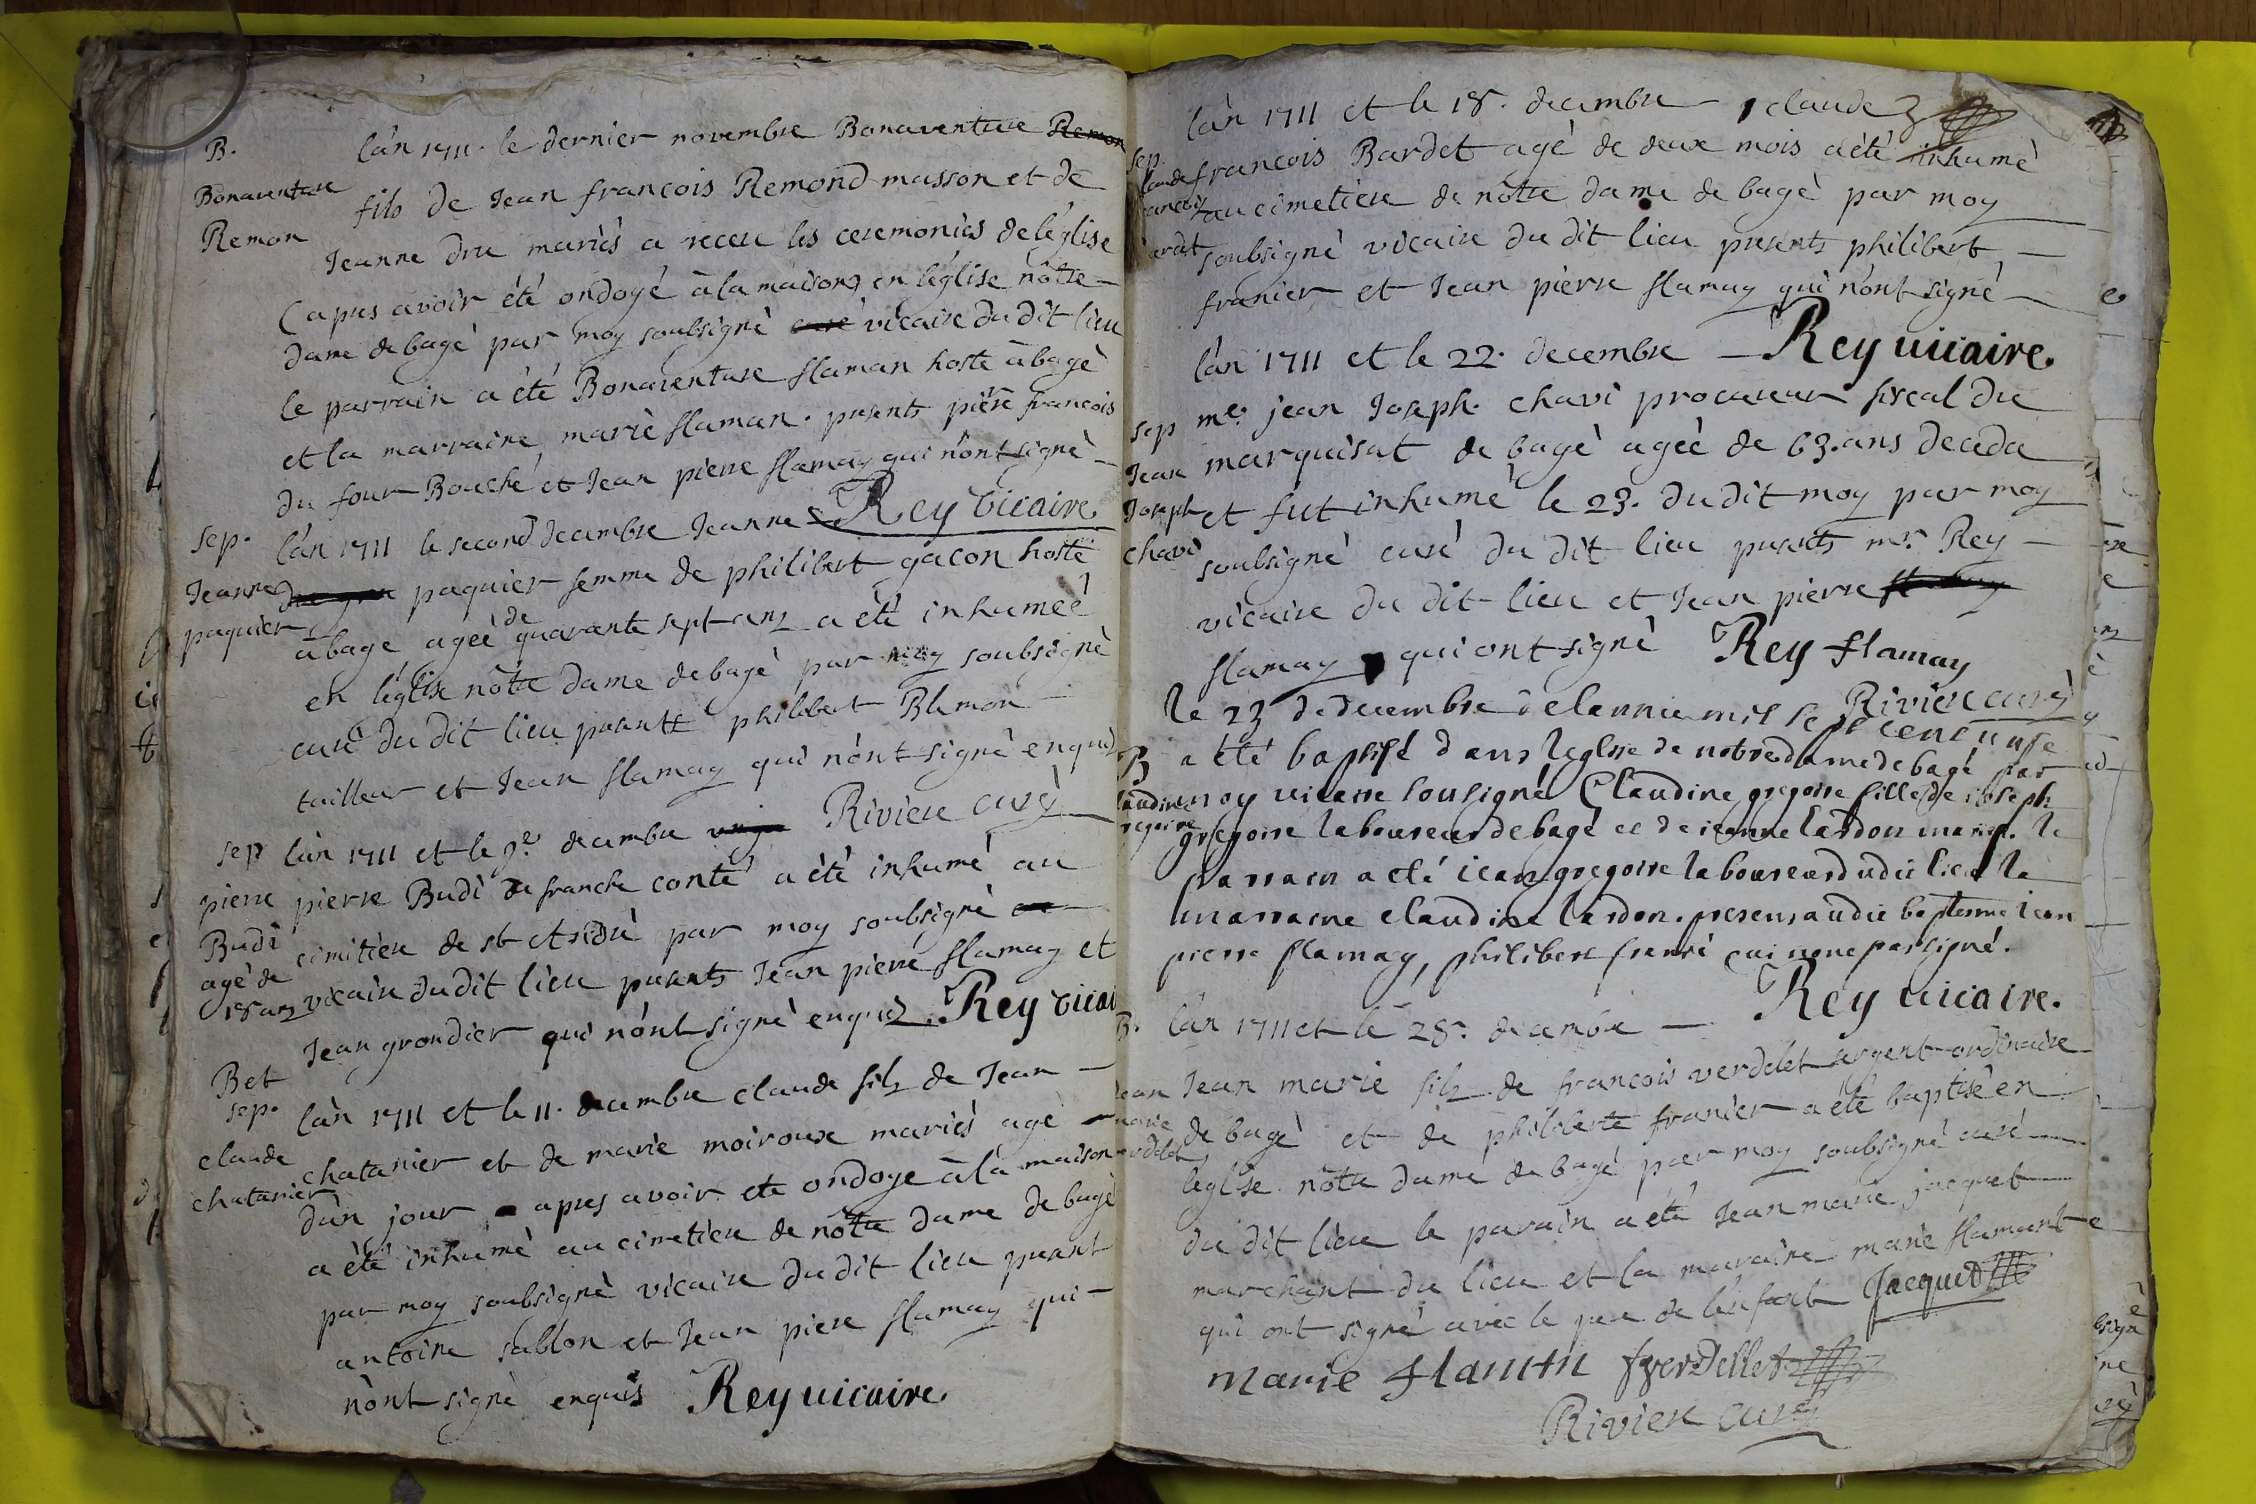 B.
Bonaventure
Remon
l'an 1711. le dernier novembre Bonaventure Remon
fils de Jean francois Remond masson et de
Jeanne dru mariès a receu les ceremonies de l'église
(apres avoir été ondoyé à la maison) en l'église nôtre
dame de bagé par moy soubsigné curé vicaire du dit lieu
le parrain a été Bonaventure flaman hoste à bagé
et la marraine marie flaman. presents pierre francois
du four Bouché et Jean pierre flamay qui n'ont signè
Rey vicaire
sep.
Jeanne
paquier
l'an 1711 le second decembre Jeanne
paquier femme de philibert gacon hoste
a bage ageé de quarante sept ans a été inhumeé
en l'église nôtre dame de bagé par moy soubsigné
curé du dit lieu presents philibert Blemon
tailleur et Jean flamay qui n'ont signé enquis
Riviere curé
sep
pierre
Budi
agé de
18 ans
l'an 1711 et le 9e decembre
pierre Budi de franche conté a été inhumé au
cimitiere de st par moy soubsigné
vicaire du dit lieu presents Jean pierre flamay et
Jean grondier qui n'ont signé enquis Rey vicai
Bet
sep.
claude
chatanier
l'an 1711 et le 11. decembre claude fils de Jean
chatanier et de marie moiroux mariés agé
d'un jour apres avoir ete ondoye à la maison
a été inhumé au cimetiere de nôtre dame de bagé
par moy soubsigné vicaire du dit lieu presant
antoine sablon et Jean piere flamay qui
n'ont signé enquis Rey vicaire
l'an 1711 et le 18. decembre claude
sep.
laude
rancois
ardet
francois Bardet agé de deux mois a été inhumè
au cimetiere de nôtre dame de bagè par moy
soubsigné vicaire du dit lieu presents philibert
franier et Jean pierre flamay qui n'ont signé
Rey vicaire
l'an 1711 et le 22. decembre
sep
Jean
Joseph
chavi
me. jean Joseph. chavi procureur fiscal du
marquisat de bagé ageè de 63. ans deceda
et fut inhumé le 23. du dit moy par moy
soubsigné curé du dit lieu presents mr. Rey
vicaire du dit lieu et Jean pierre
flamay qui ont signé Rey flamay
Riviere curé
le 23 de decembre de lannee mil sept cent unse
B
laudine
regoire
a eté baptisé dans leglise de notre dame de bagé par
moy vicaire sousigné Claudine gregoire fille de ioseph
gregoire laboureur de bagé et de ieanne lardon mariés. le
parrain a eté iean gregoire laboureur dudit lieu la
marraine claudine lardon. presens audit baptesme iean
pierre flamay, philibert franié qui nont pas signé.
Rey vicaire.
B.
l'an 1711 et le 28. decembre
Jean
marie
verdelet
Jean marie fils de francois verdelet sergent ordinaire
de bagé et de philiberte franier a été baptisé en
l'eglise nôtre dame de bagé par moy soubsigné curé
du dit lieu le parain a été Jean marie jacquet
marchant du lieu et la maraine marie flamant
qui ont signé avec le pere de l'enfant Jacquet
marie flamin f verdellet
Riviere curé